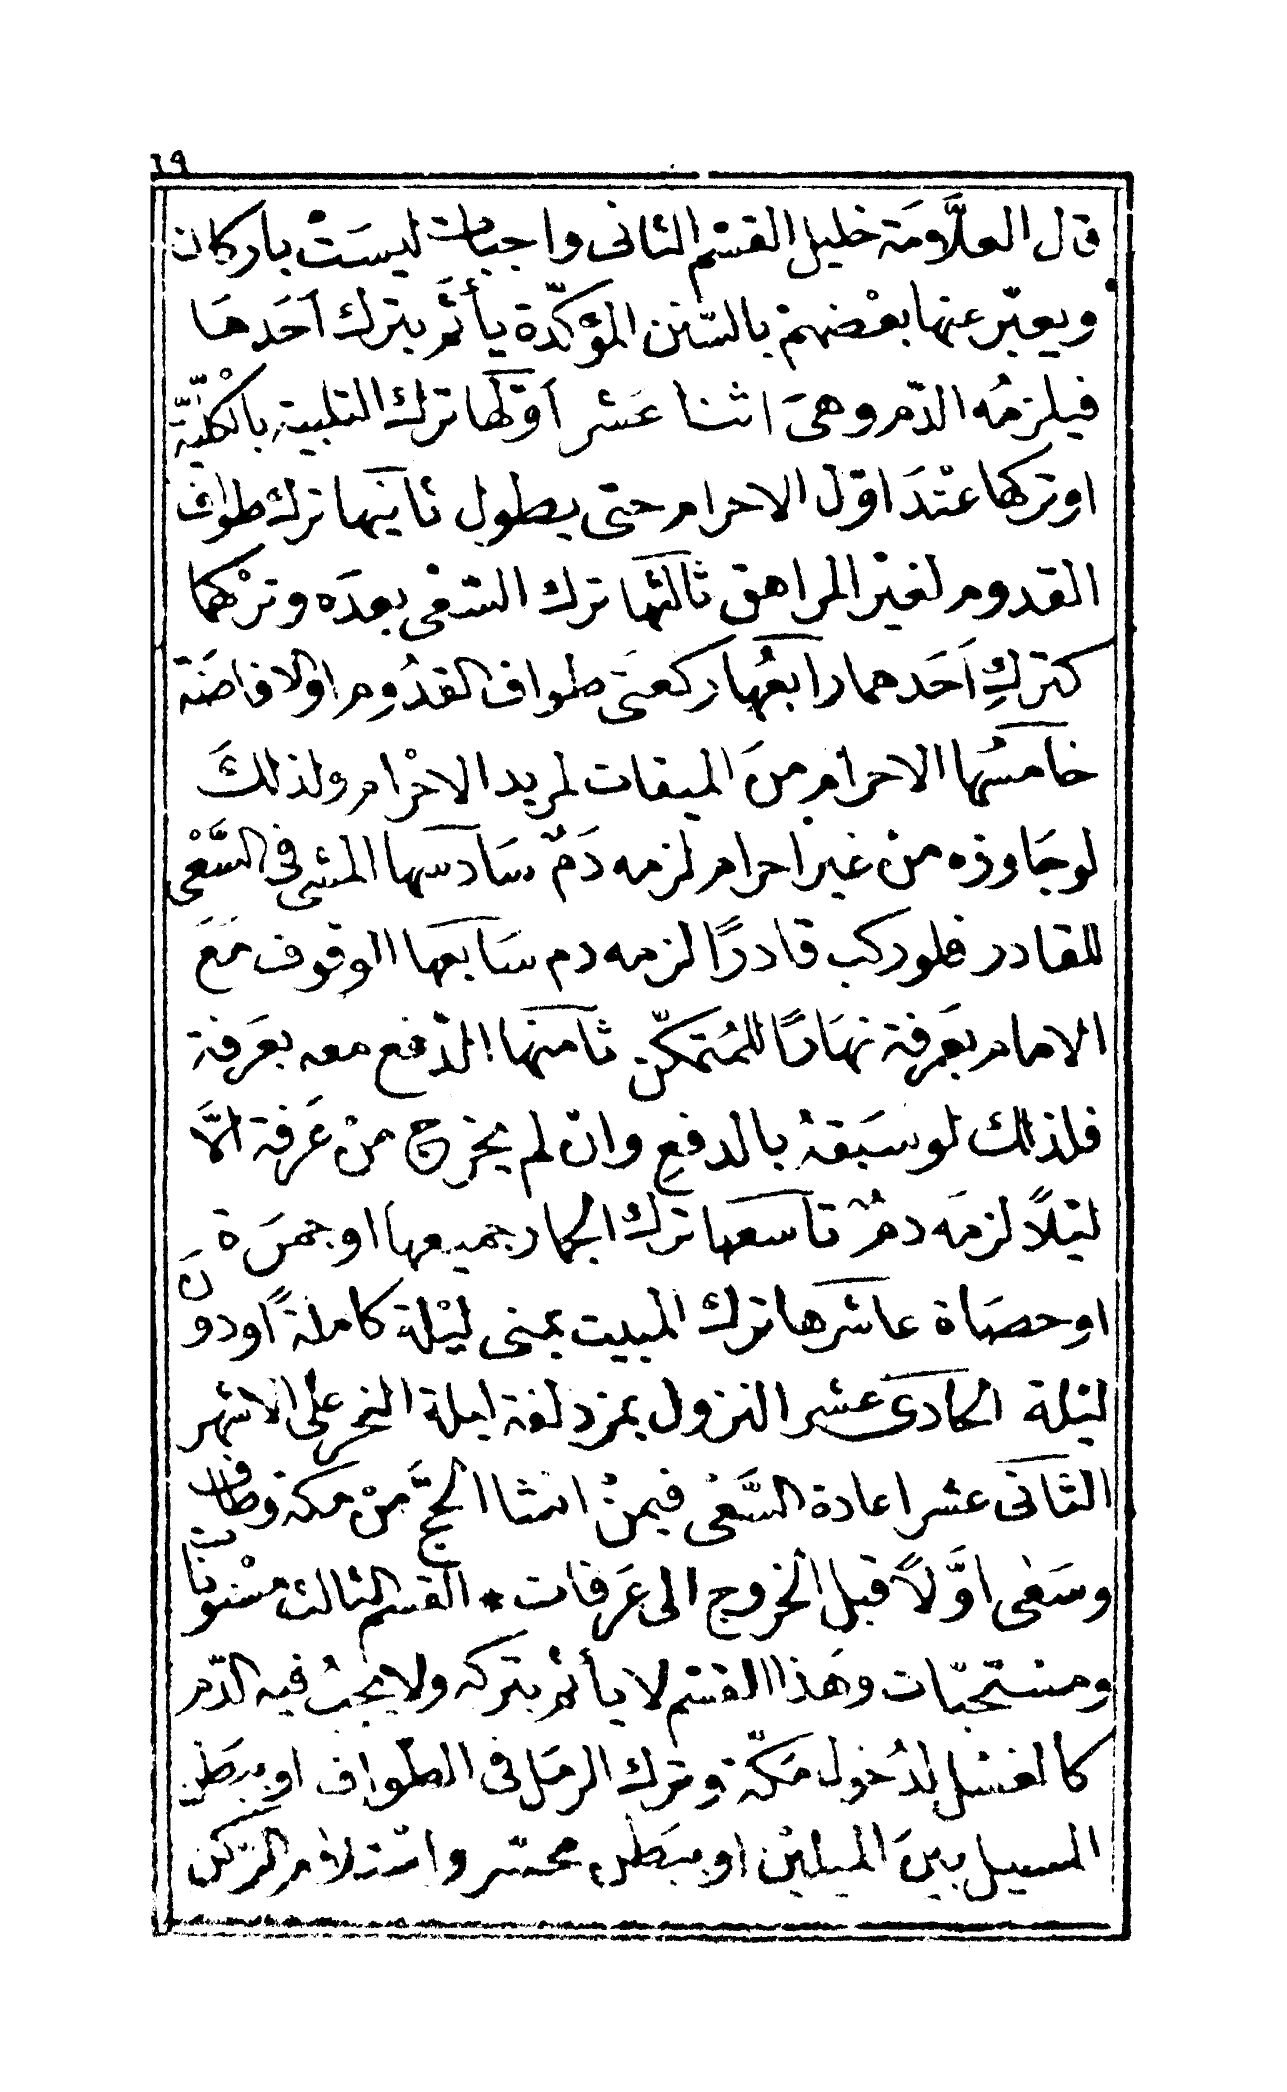 ١٩
قال العلَّامَة خليل القسْم الثانى واجبات ليسَتْ باركان
ويعبّر عنها بعْضهمْ بالسّنن المؤكّدة يأثَم بترك اَحَدهَا
فيلزمُه الدّم وهىَ اثنا عَشر اَوّلها ترك التلبية بالكُلّيَّة
اوتركها عنْدَ اوّل الاحرام حتى يطول ثانيها ترك طواف
القدوم لغيْر المراهق ثالثها ترك السّعْى بعدَه وترْكهما
كتركِ اَحَدهما رابعُها ركعتَى طواف القدُومِ اولافاضَة
خامسُها الاحرام منَ الميقات لمريد الاحْرام ولذلكَ
لوجَاوزه منْ غير احرام لزمه دَمٌ سَادسها المشى فى السَّعْى
للقادر فلوركب قادرًا لزمه دم سَابعها الوقوف مَعَ
الامام بعَرفة نهَارًا للمُتمكّن ثامنها الدّفع معه بعَرفة
فلذلك لوسَبقهُ بالدفعِ وانْ لم يخرج منْ عَرفة الَّا
ليْلًا لزمَه دمٌ تاسعها ترك الجمار جميعها اوجمرَة
اوحصَاة عاشرها ترك المبيت بمنى ليْلة كاملةً اودونَ
ليْلة الحادى عشر النزول بمزدلفة ليلة النحر على الاشهر
الثانى عشر اعادة السَّعْى فيمنْ انشا الحجَّ منْ مكة وطاف
وسَعْى اوَّلًا قبل الخروج الى عَرفات * القسم الثالث مسْنونات
ومستحبّات وهَذا القسْم لا يأثم بتركه ولا يجبُ فيه الدّم
كالغسْل لدُخول مَكّة وترك الرمَل فى الطّواف او ببَطن
المسيل بينَ الميليْن او ببَطن محسّر واسْتلام الرّكن